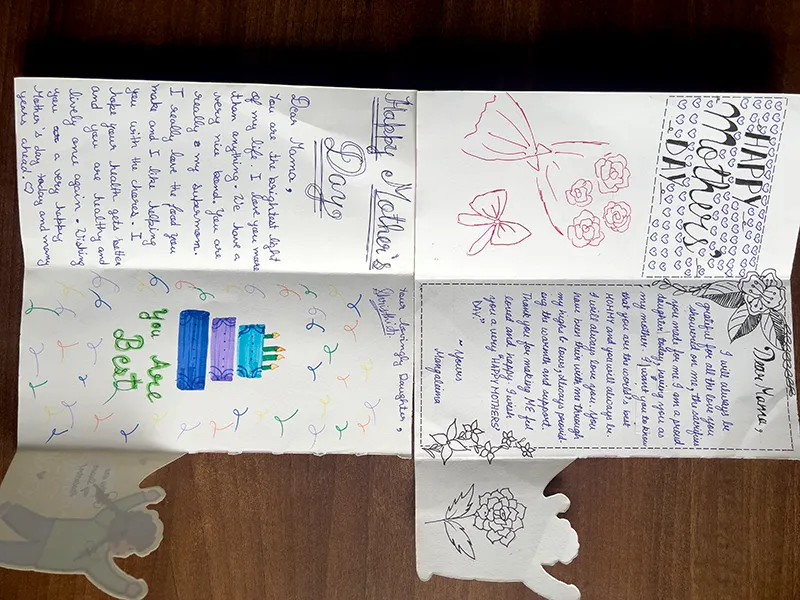 HAPPY
Mothers'
DAY
Dear Mama,
I will always be
grateful for all the love you
showered on me, the sacrifices
you made for me. I am a proud
daughter today, having you as
my mother. I want you to know
that you are the world's best
MOM!! and you will always be.
I will always love you. You
have been there with me through
my highs & lows, always provid
ing the warmth and support.
Thank you for making ME feel
loved and happy. I wish
you a very "HAPPY MOTHERS'
DAY"
~ Yours
Happy Mother's
Day
Dear Mama,
You are the brightest light
of my life. I love you more
than anything. We have a
very nice bond. You are
really a my superman.
I really love the food you
make and I like helping
you with the chores. I
hope your health gets better
and you are healthy and
lively once again. Wishing
you are a very happy
Mother's day today and many
years ahead. ♡
Your lovingly daughter,
You Are
Best